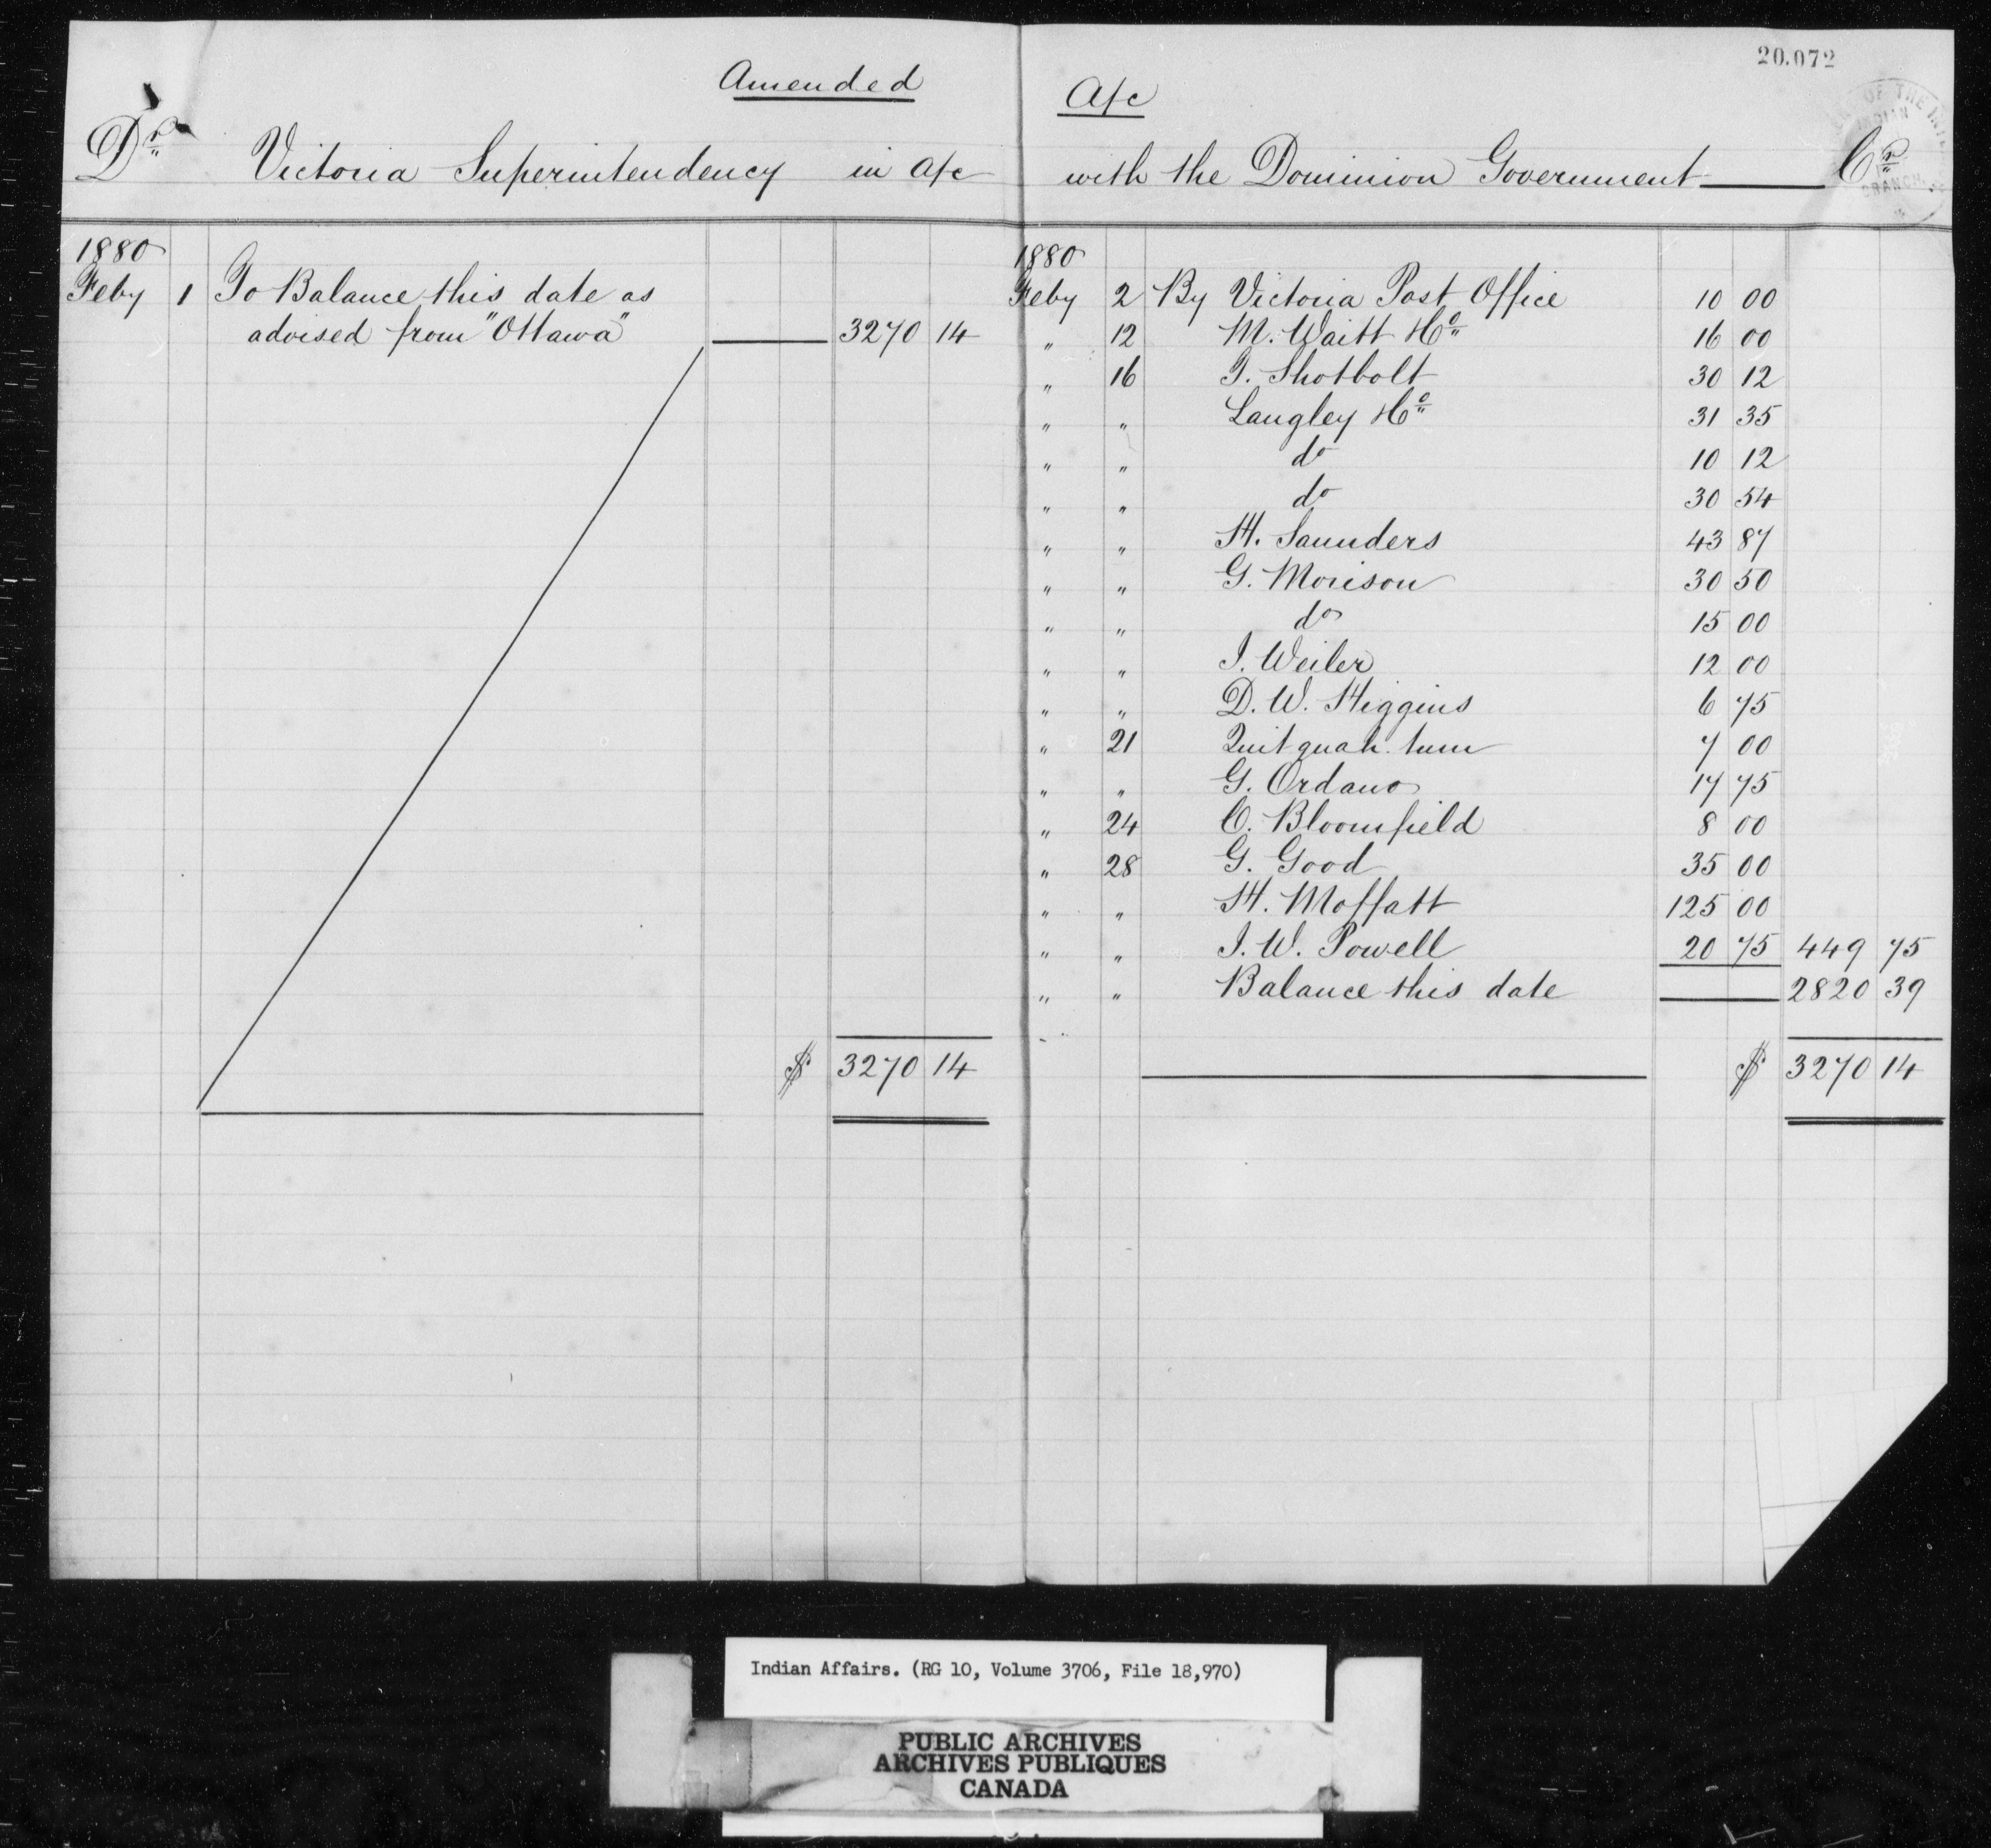 20.072
Amended A/c
Dr Victoria Superintendency in A/c with the Dominion Government Cr
1880
Feby 1 To Balance this date as
advised from "Ottawa" 3270 14
$ 3270 14
1880
Feby 2 By Victoria Post Office 10 00
" 12 M. Waitt & Co 16 00
" 16 T. Shotbolt 30 12
" " Langley & Co 31 35
" " do 10 12
" " do 30 54
" " H. Saunders 43 87
" " G. Morison 30 50
" " do 15 00
" " J. Weiler 12 00
" " D. W. Higgins 6 75
" 21 Quitquah.tum 7 00
" " G. Ordano 17 75
" 24 C. Bloomfield 8 00
" 28 G. Good 35 00
" " H. Moffatt 125 00
" " I. W. Powell 20 75 449 75
" " Balance this date 2820 39
$ 3270 14
Indian Affairs. (RG 10, Volume 3706, File 18,970)
PUBLIC ARCHIVES
ARCHIVES PUBLIQUES
CANADA